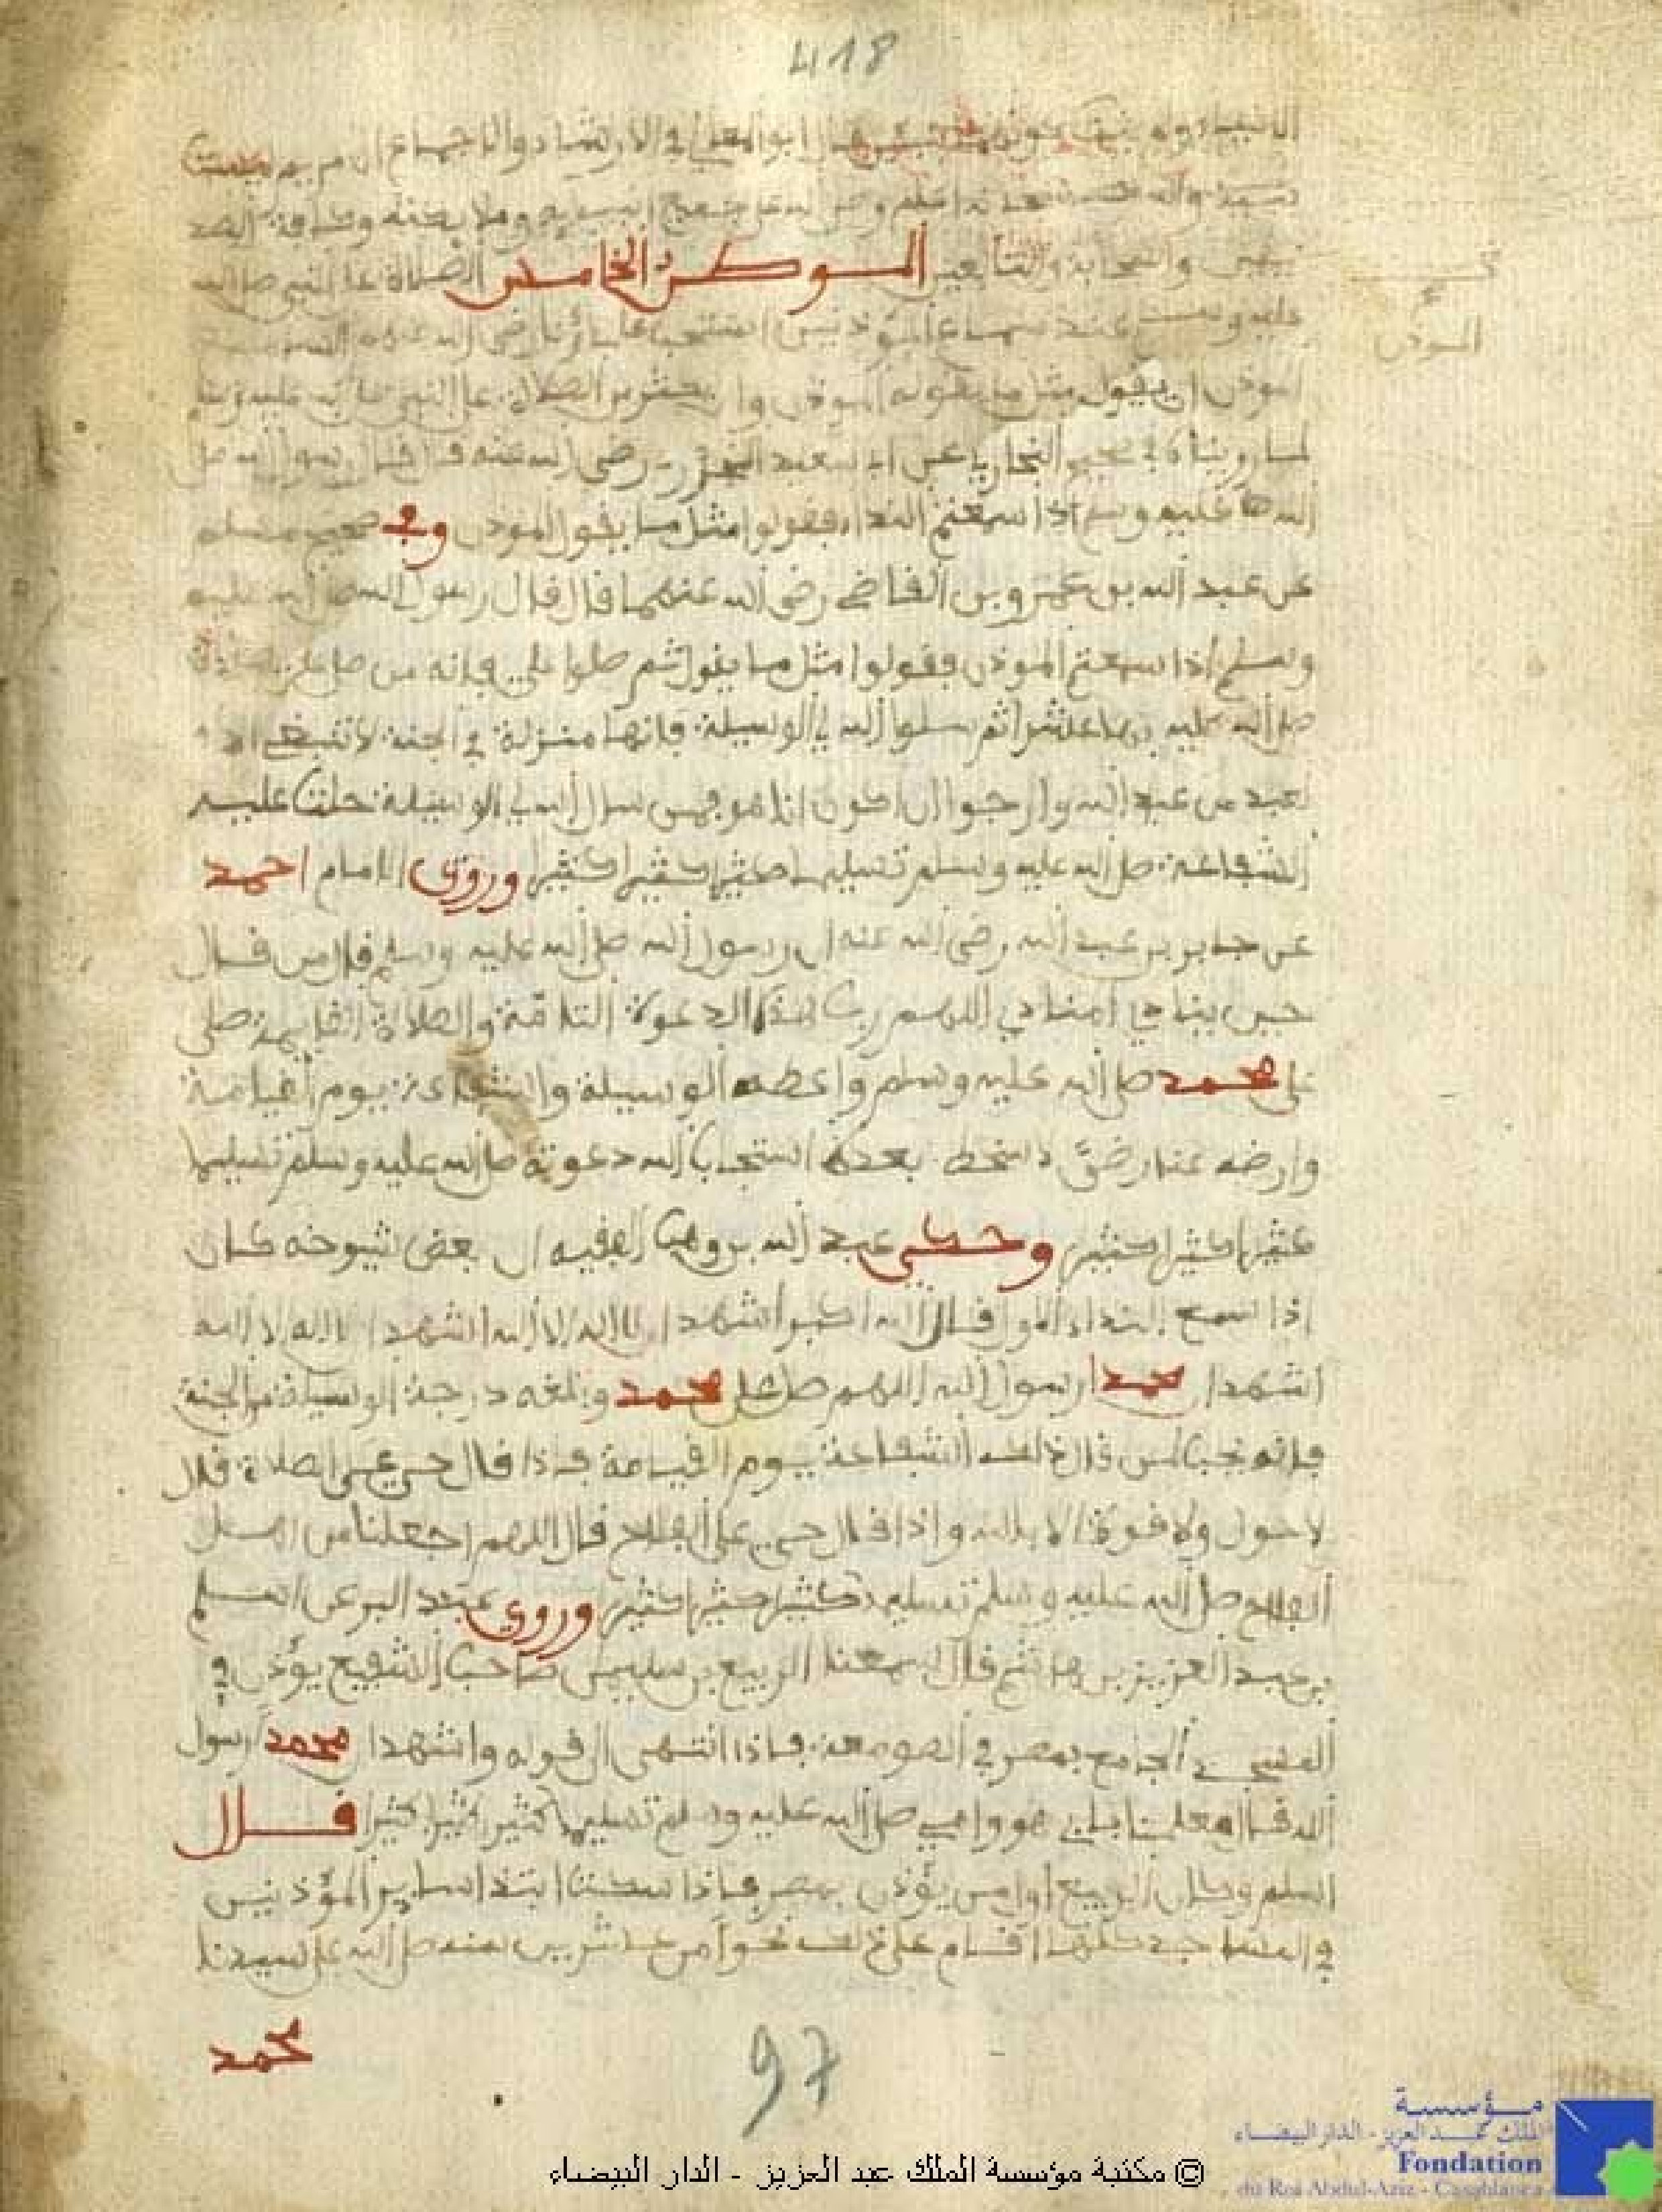 418
ابو المعلي في الارشاد والاجماع ان مريم ليست
والصحابة والتابعين الموطن الخامس الصلاة على النبي صلى الله
عليه وسلم عند سماع المؤذنين استحب علماؤنا رضي الله عنهم
المؤذن
المؤذن ان يقول مثل ما يقوله المؤذن وان يكثر من الصلاة على النبي صلى الله عليه وسلم
لما رويناه في صحيح البخاري عن ابي سعيد الخدري رضي الله عنه قال قال رسول الله صلى
الله عليه وسلم اذا سمعتم النداء فقولوا مثل ما يقول المؤذن وفي صحيح مسلم
عن عبد الله بن عمرو بن العاصي رضي الله عنهما قال قال رسول الله صلى الله عليه
وسلم اذا سمعتم المؤذن فقولوا مثل ما يقول ثم صلوا علي فإنه من صلى علي صلاة
صلى الله عليه بها عشرا ثم سلوا الله لي الوسيلة فإنها منزلة في الجنة لا تنبغي الا
لعبد من عباد الله وارجوا ان اكون انا هو فمن سال الله لي الوسيلة حلت عليه
الشفاعة صلى الله عليه وسلم تسليما كثيرا كثيرا كثيرا وروى الامام احمد
عن جابر بن عبد الله رضي الله عنه ان رسول الله صلى الله عليه وسلم قال من قال
حين ينادي المنادي اللهم رب هذه الدعوة التامة والصلاة القايمة صلى
على محمد صلى الله عليه وسلم واعطه الوسيلة والشفاعة يوم القيامة
وارضه عنا رضى لا سخط بعده استجاب الله دعوته صلى الله عليه وسلم تسليما
كثيرا كثيرا كثيرا وحكى عبد الله بن وهب الفقيه ان بعض شيوخه كان
اذا سمع النداء الاول قال الله اكبر اشهد ان لا اله الا الله اشهد ان لا اله الا الله
اشهد ان محمدا رسول الله اللهم صل على محمد وبلغه درجة الوسيلة من الجنة
فإنه تجب لمن قال ذلك الشفاعة يوم القيامة فإذا قال حي على الصلاة قال
لا حول ولا قوة الا بالله واذا قال حي على الفلاح قال اللهم اجعلنا من اهل
الفلاح صلى الله عليه وسلم تسليما كثيرا كثيرا كثيرا وروى عبد البر عن اسلم
بن عبد العزيز بن هاشم قال سمعنا الربيع بن سليمن صاحب الشافعي يؤذن في
المسجد الجامع بمصر في الصومعة فإذا انتهى الى قوله واشهد ان محمدا رسول
الله قال معلنا بابي هو وامي صلى الله عليه وسلم تسليما كثيرا كثيرا كثيرا قال
اسلم وكان الربيع اول من يؤذن بمصر فإذا سكت ابتدا ساير المؤذنين
في المساجد كلها اقام على ذلك نحوا من عشرين سنه صلى الله على سيدنا
محمد
97
مؤسسة
الملك عبد العزيز - الدار البيضاء
Fondation
du Roi Abdul-Aziz - Casablanca
© مكتبة مؤسسة الملك عبد العزيز - الدار البيضاء